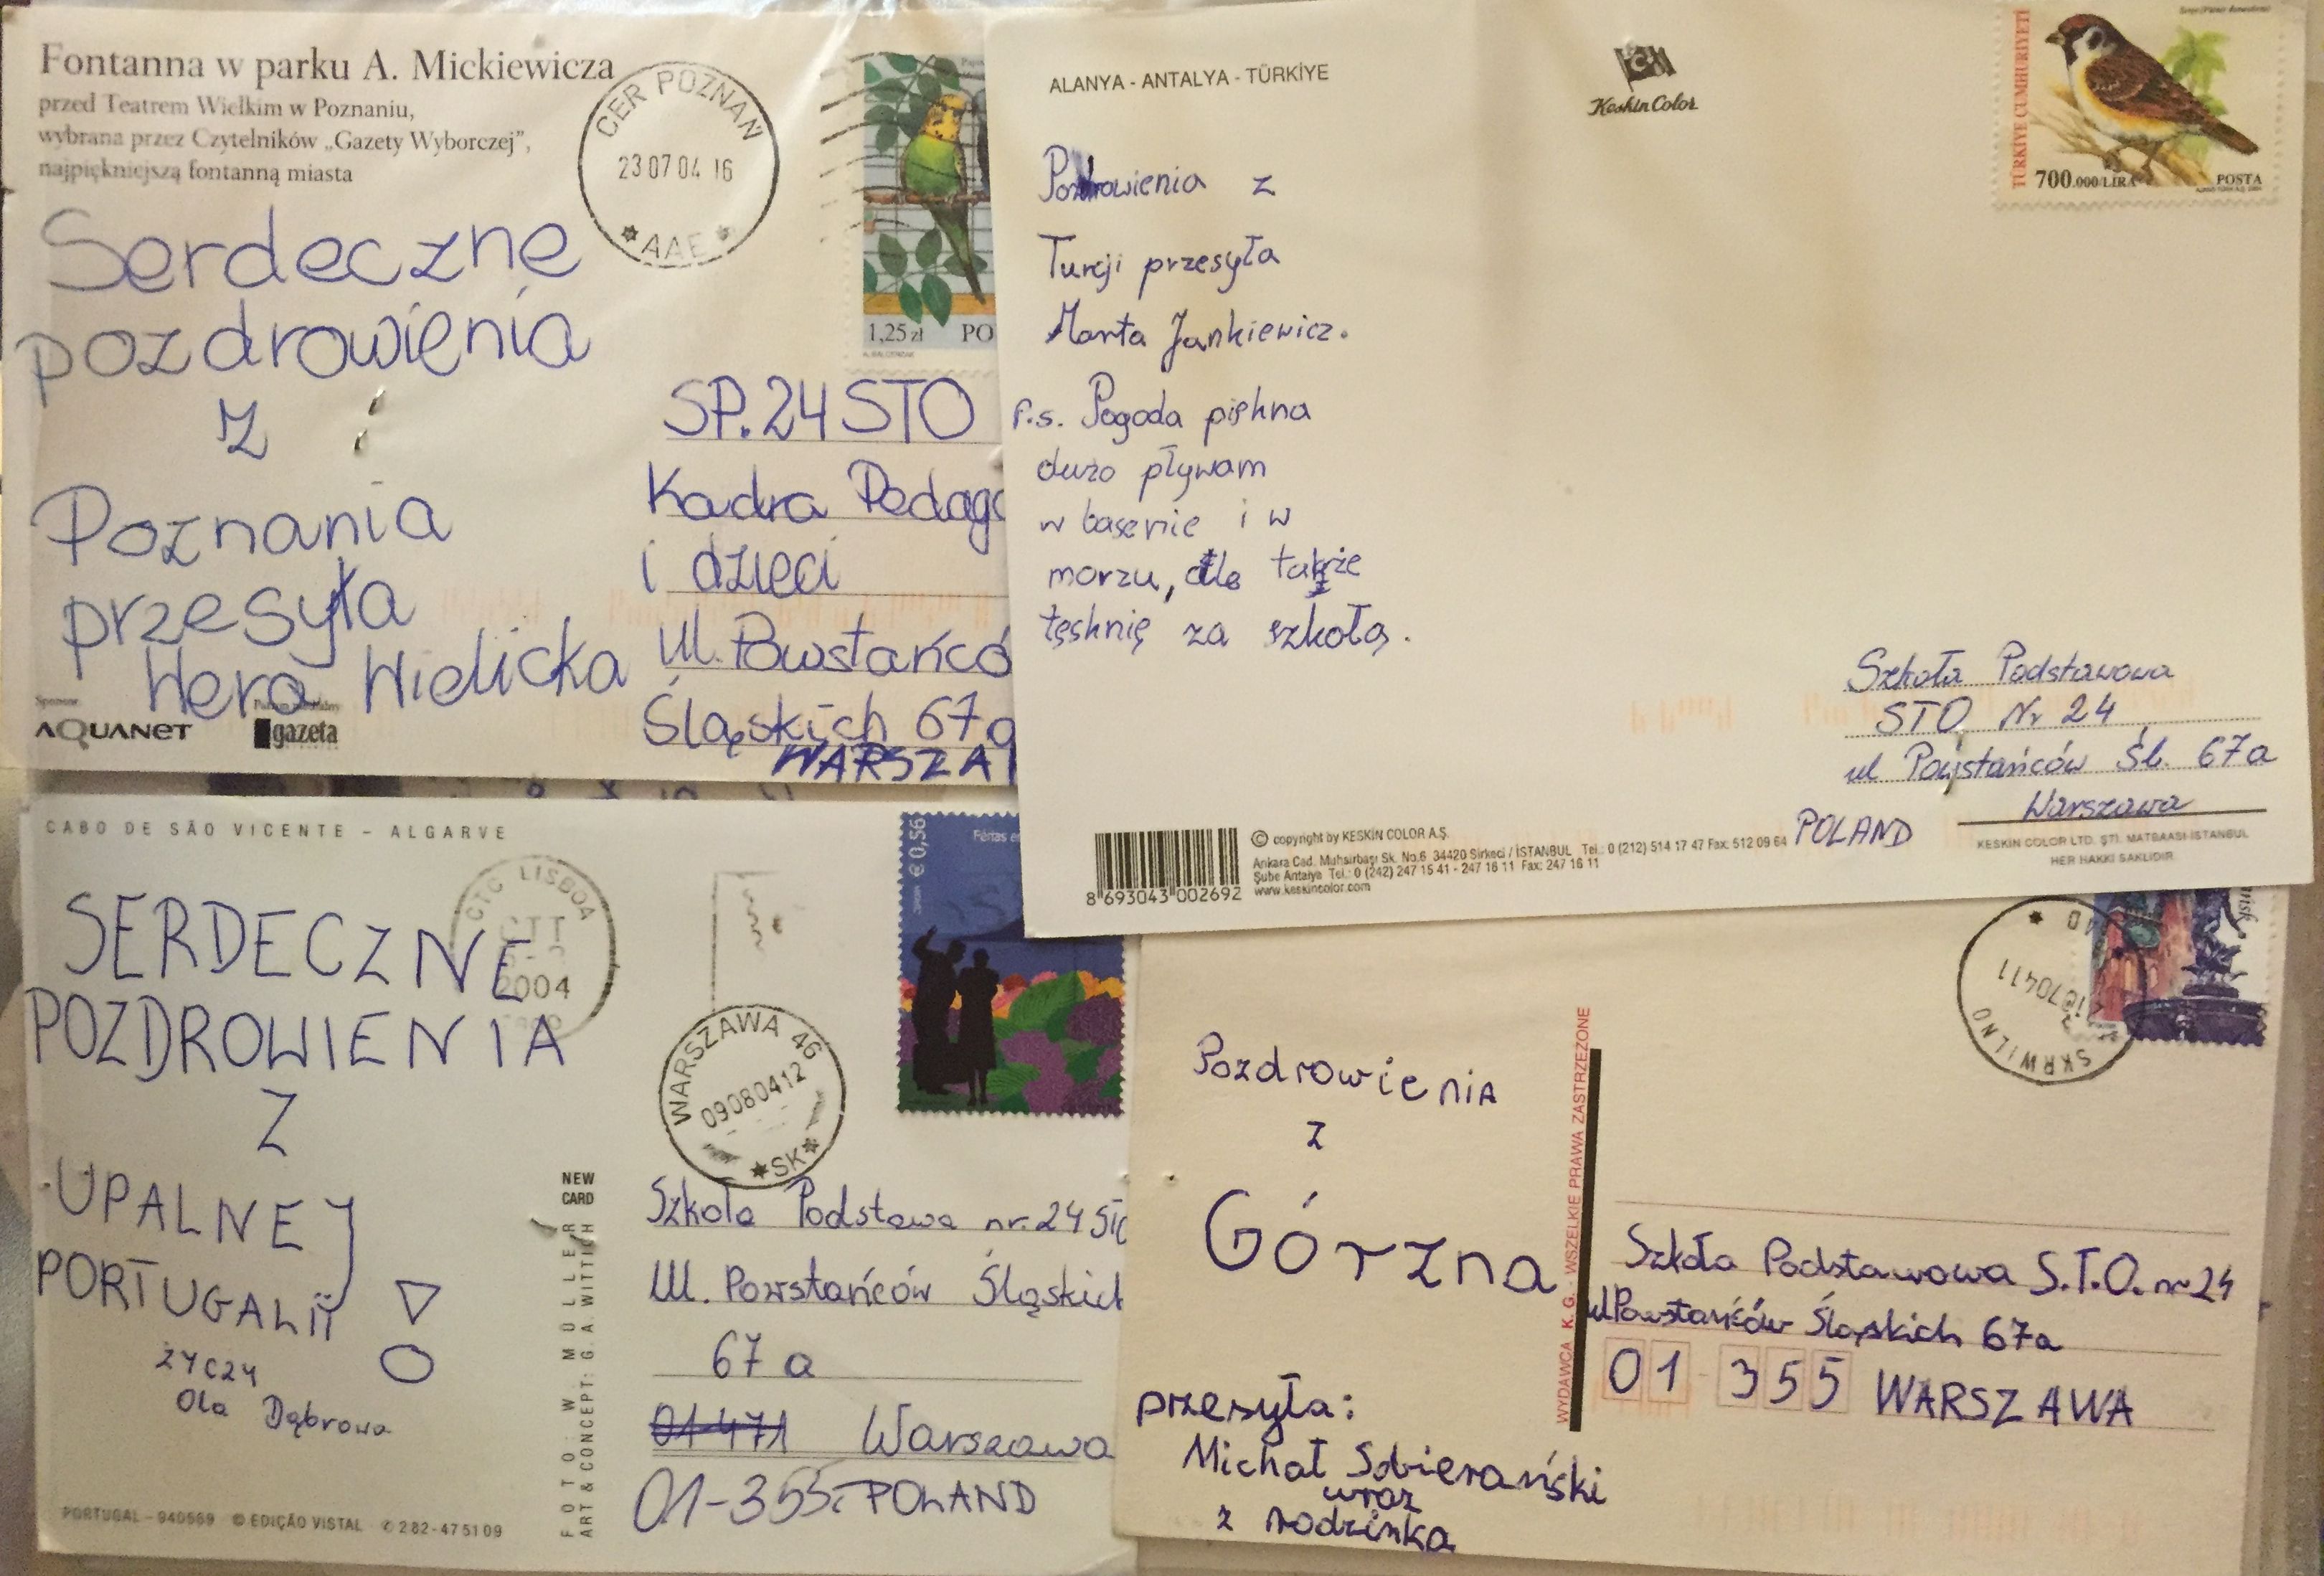 Fontanna w parku A. Mickiewicza
przed Teatrem Wielkim w Poznaniu,
wybrana przez Czytelników „Gazety Wyborczej”,
najpiękniejszą fontanną miasta
CER POZNAŃ
23 07 04 16
* AAE *
1,25 zł PO
Serdeczne
pozdrowienia
z
Poznania
przesyła
Wera Wielicka
Sponsor
AQUANET
gazeta
SP. 24 STO
Kadra Pedago
i dzieci
Ul. Powstańcó
Śląskich 67a
WARSZA
ALANYA - ANTALYA - TÜRKİYE
Keskin Color
TÜRKİYE CUMHURİYETİ
700.000/LİRA POSTA
Pozdrowienia z
Turcji przesyła
Marta Jankiewicz.
P.s. Pogoda piękna
dużo pływam
w basenie i w
morzu, ale także
tęsknię za szkołą.
Szkoła Podstawowa
STO Nr 24
ul Powstańców Śl. 67a
Warszawa
POLAND
8 693043 002692
© copyright by KESKİN COLOR A.Ş.
Ankara Cad. Muhsirbaşı Sk. No.6 34420 Sirkeci / İSTANBUL Tel.: 0 (212) 514 17 47 Fax: 512 09 64
Şube Antalya Tel.: 0 (242) 247 15 41 - 247 16 11 Fax: 247 16 11
www.keskincolor.com
KESKİN COLOR LTD. ŞTİ. MATBAASI-İSTANBUL
HER HAKKI SAKLIDIR
CABO DE SÃO VICENTE - ALGARVE
CTC LISBOA
CTT
2004
€ 0,56
Férias e
SERDECZNE
POZDROWIENIA
Z
UPALNEJ
PORTUGALII
ŻYCZY
Ola Dąbrowa
WARSZAWA 46
09080412
*SK*
NEW
CARD
FOTO: W. MÜLLER
ART & CONCEPT: G.A. WITTICH
Szkoła Podstawa nr. 24 STO
Ul. Powstańców Śląskich
67 a
01-471 Warszawa
01-355 POLAND
PORTUGAL - 940569 © EDIÇÃO VISTAL ✆ 282-475109
SKRWILNO
Pozdrowienia
z
Górzna
przesyła:
Michał Sobierański
wraz
z rodzinka
WYDAWCA K.G. - WSZELKIE PRAWA ZASTRZEŻONE
Szkoła Podstawowa S.T.O. nr 24
ul Powstańców Śląskich 67a
01 355 WARSZAWA